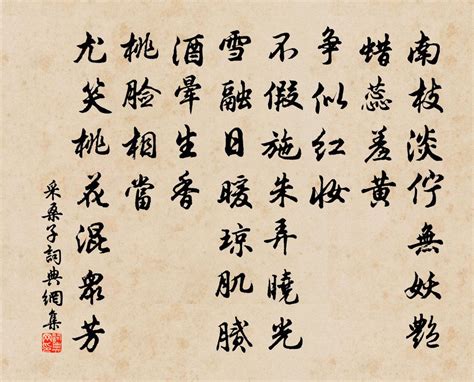 南枝淡佇無妖艷
蜡蕊羞黄
争似红妆
不假施朱弄曉光
雪融日暖琼肌膩
酒暈生香
桃脸相當
尤笑桃花混眾芳
采桑子詞典網集